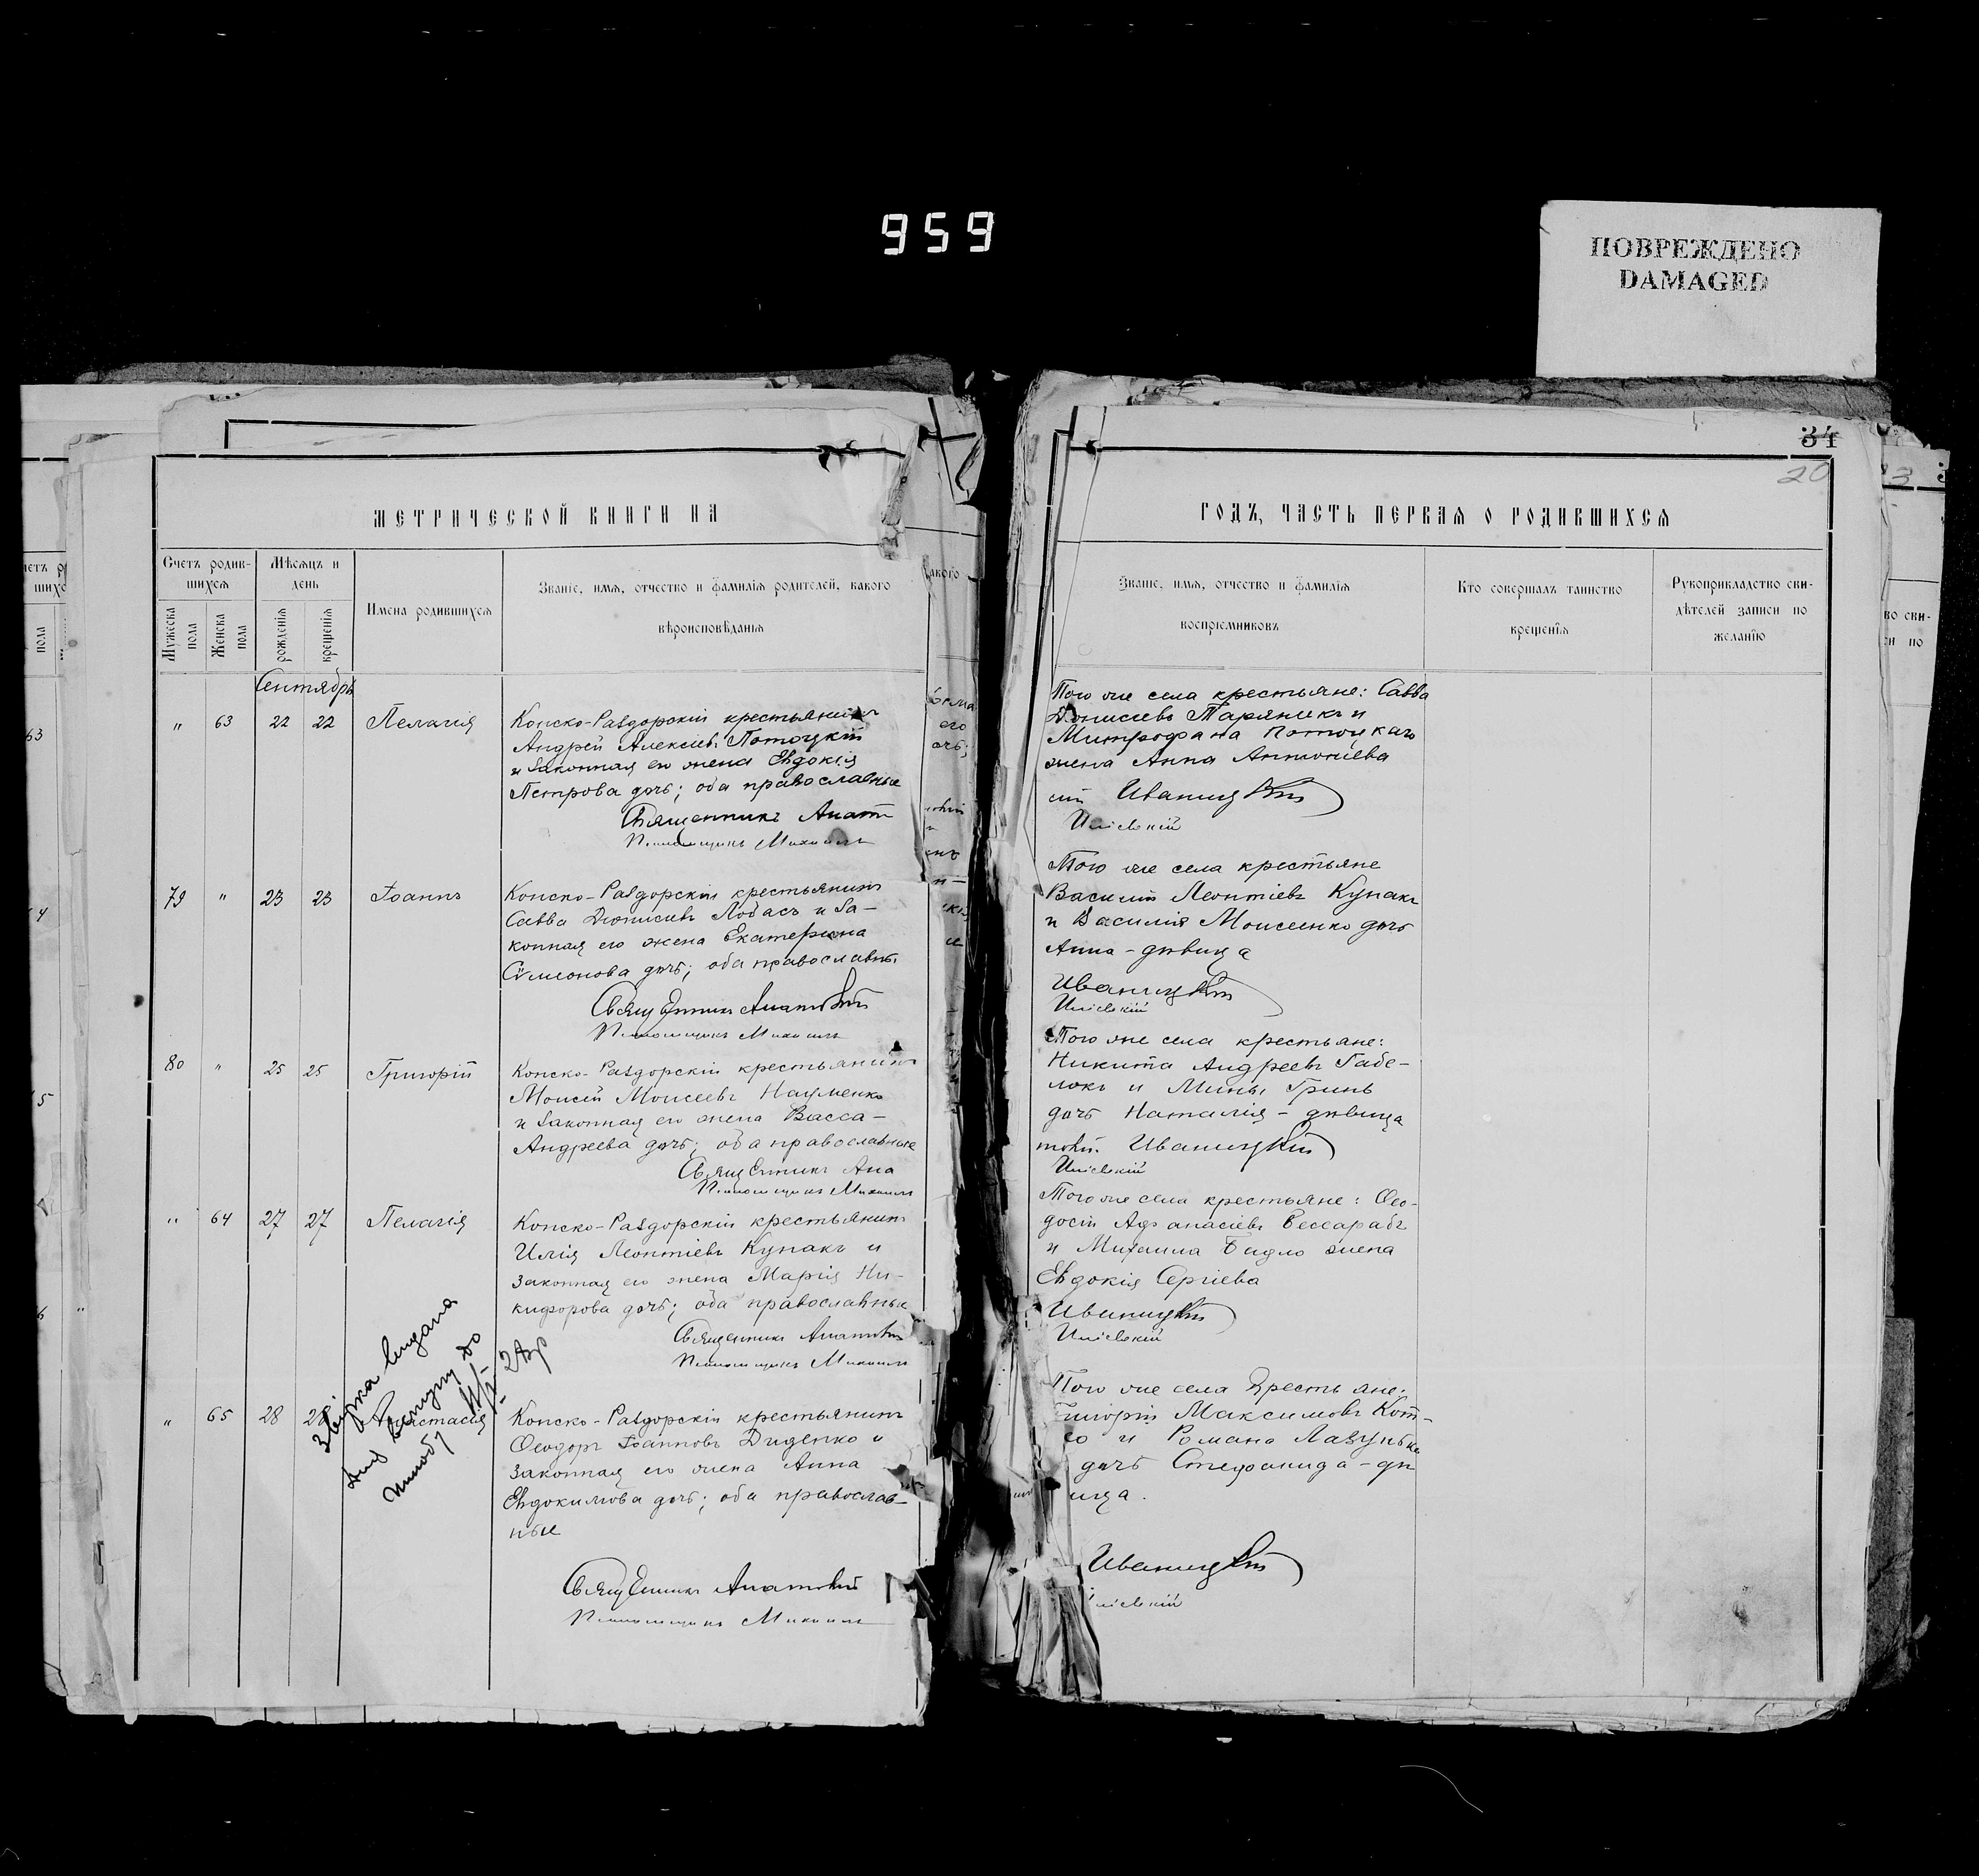 959
ПОВРЕЖДЕНО
DAMAGED
34
20
МЕТРИЧЕСКОЙ КНИГИ НА
Счетъ родив-
шихся
Мѣсяцъ и
день
Имена родившихся
Званіе, имя, отчество и фамилія родителей, какого
вѣроисповѣданія
Мужеска
пола
Женска
пола
рожденія
крещенія
Сентябрь
" 63 22 22 Пелагія
Конско-Раздорскій крестьянинъ
Андрей Алексіевъ Потоцкій
и законная его жена Евдокія
Петрова дочь; оба православные
Священникъ Анатов
Михаилъ
79 " 23 23 Іоаннъ
Конско-Раздорскій крестьянинъ
Савва Діонисіевъ Лобасъ и за-
конная его жена Екатерина
Сѵмеонова дочь; оба православны
Священникъ
Михаилъ
80 " 25 25 Григорій
Конско-Раздорскій крестьянинъ
Моисей Моисеевъ Науменко
и законная его жена Васса-
Андреева дочь; оба православные
Священникъ
Михаилъ
" 64 27 27 Пелагія
Конско-Раздорскій крестьянинъ
Илія Леонтіевъ Купакъ и
законная его жена Марія Ни-
кифорова дочь; оба православные
Священникъ
Михаилъ
видана
вступу до
" 65 28 28 Анастасія
Конско-Раздорскій крестьянинъ
Ѳеодоръ Іоанновъ Диденко и
законная его жена Анна
Евдокимова дочь; оба православ-
ные
Священникъ
Михаилъ
ГОДЪ, ЧАСТЬ ПЕРВАЯ О РОДИВШИХСЯ
Званіе, имя, отчество и фамилія
воспріемниковъ
Кто совершалъ таинство
крещенія
Рукоприкладство сви-
дѣтелей записи по
желанію
Того же села крестьяне: Савва
Діонисіевъ Паряникъ и
Митрофана Потоцкаго
жена Анна Антоніева
Иваницкій
Того же села крестьяне
Василій Леонтіевъ Купакъ
и Василія Моисеенко дочь
Анна-дѣвица
Иваницкій
Того же села крестьяне:
Никита Андреевъ Габе-
локъ и Мины Гринь
дочь Наталія-дѣвица
Иваницкій
Того же села крестьяне: Ѳео-
досій Афанасіевъ Бессарабъ
и Михаила Бидло жена
Евдокія Сергіева
Иваницкій
Того же села крестьяне:
Максимовъ Кот-
и Романа
дочь Стефанида-дѣ
ица.
Иваницкій